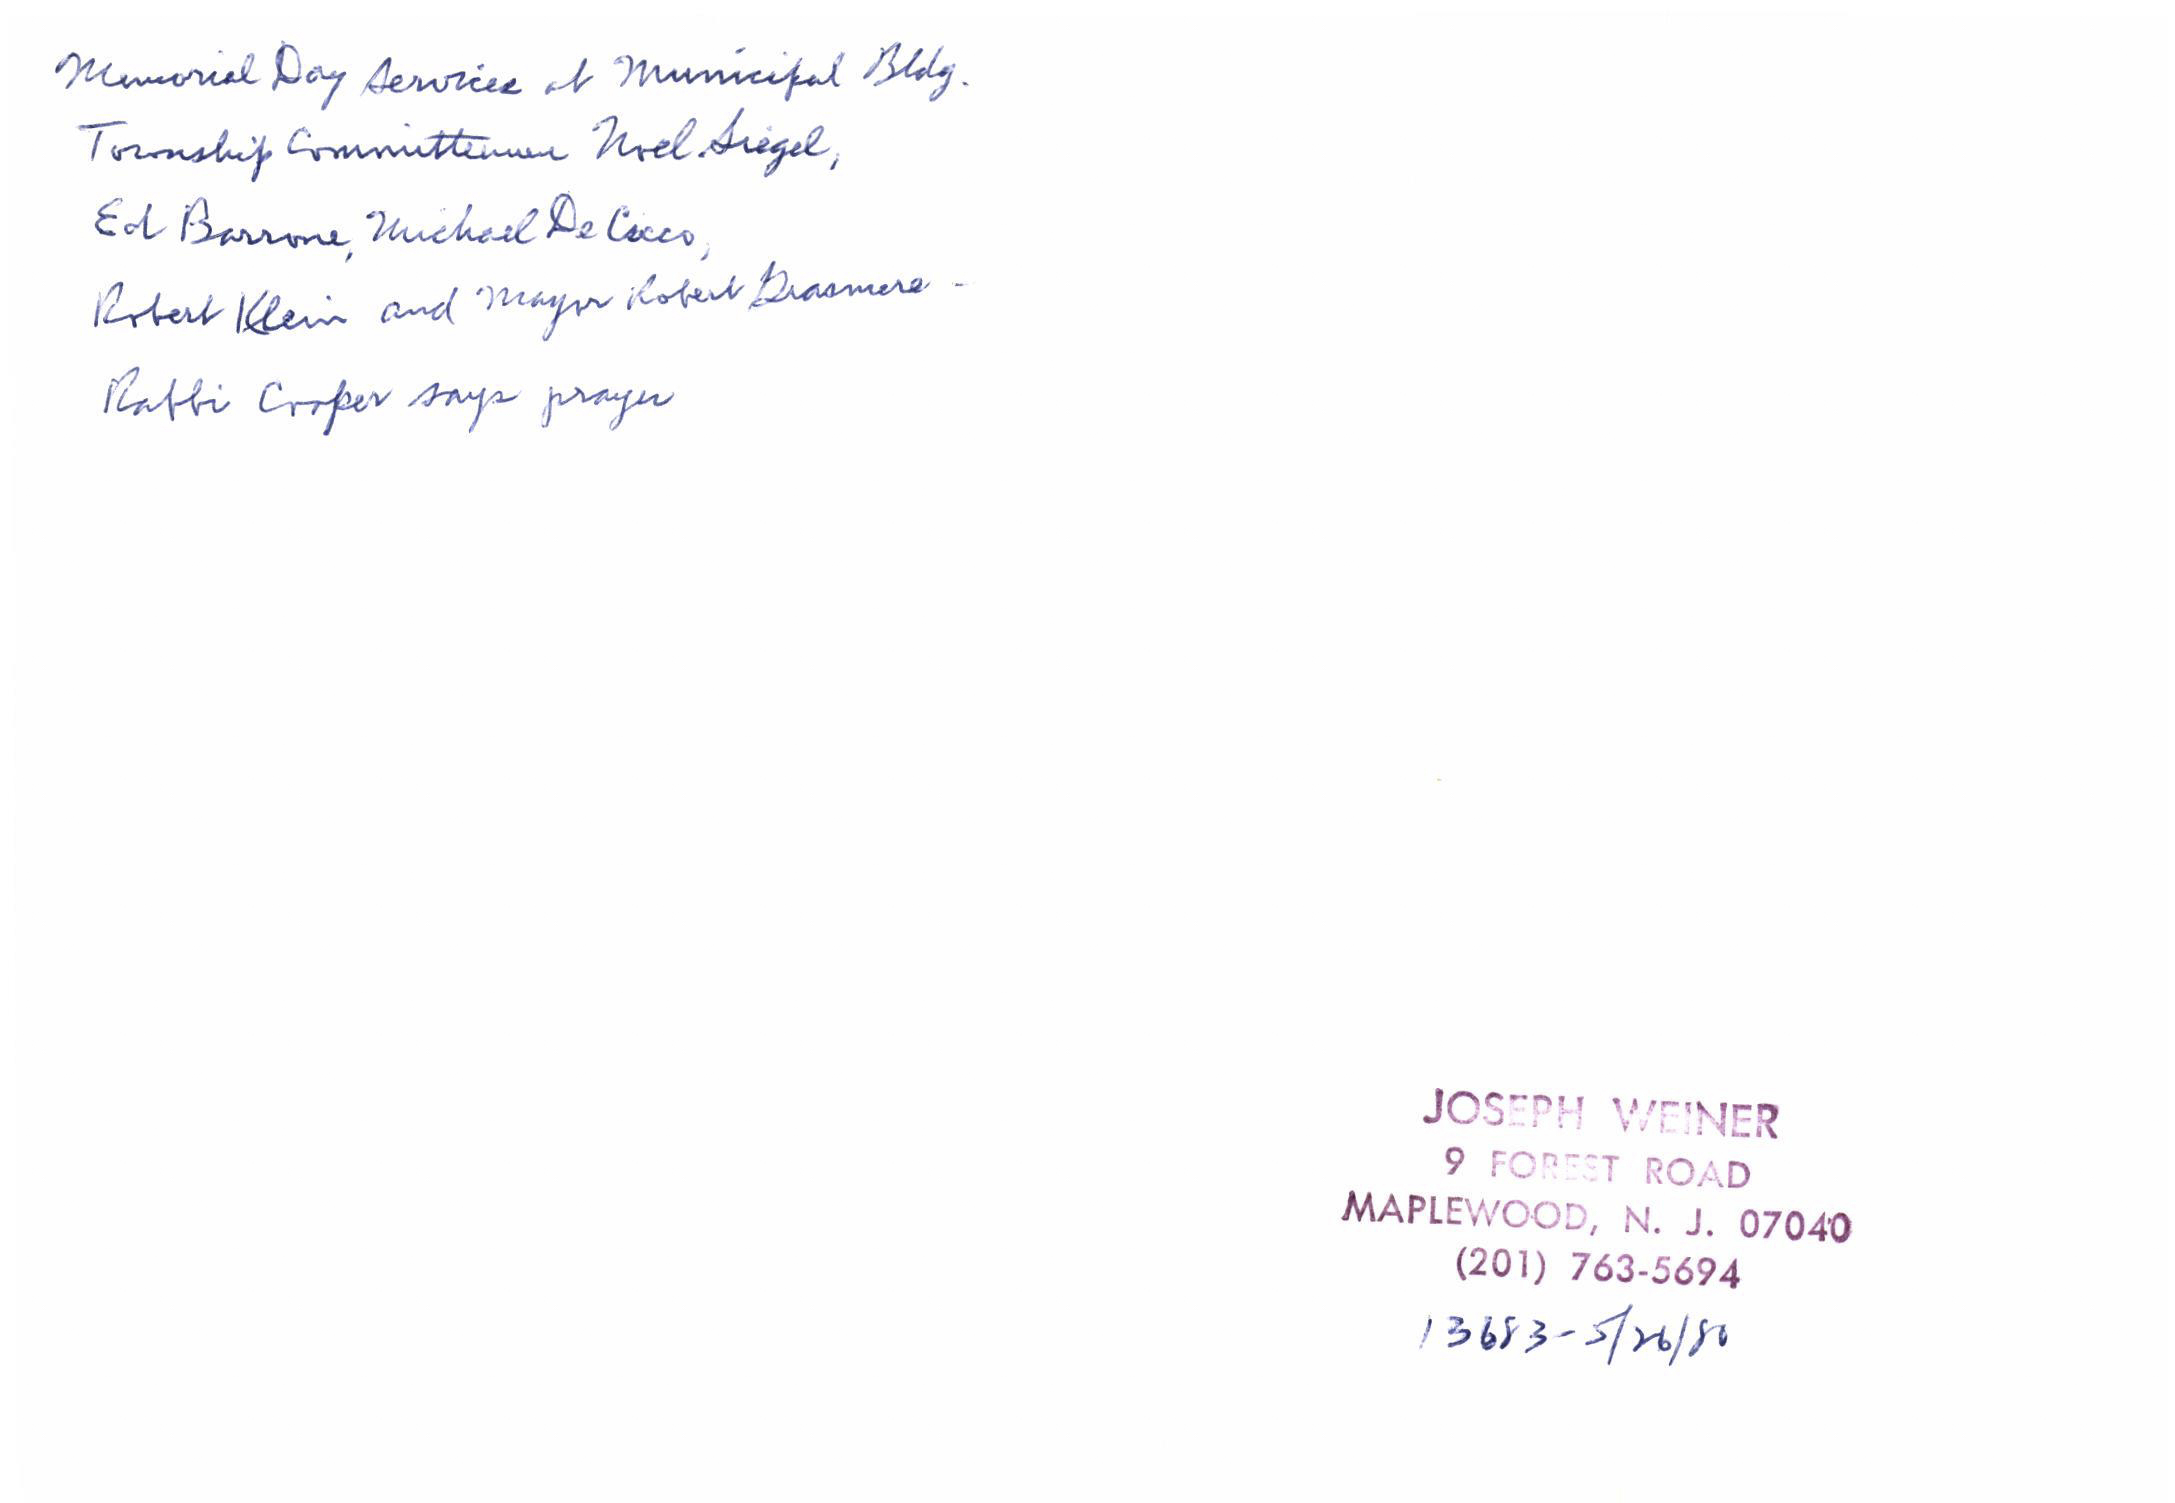 Memorial Day Services at Municipal Bldg.
Township Committeemen Noel Siegel,
Ed Barrone, Michael De Cicco,
Robert Klein and Mayor Robert Grasmere -
Rabbi Cooper says prayer
JOSEPH WEINER
9 FOREST ROAD
MAPLEWOOD, N. J. 07040
(201) 763-5694
13683-5/26/80